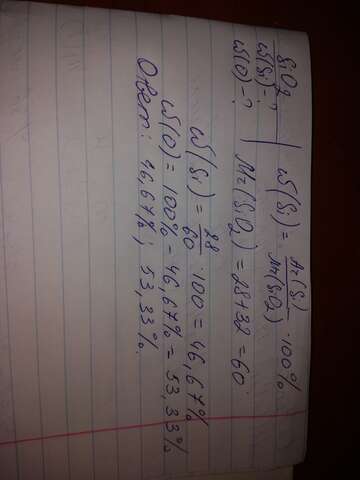 SiO2
ω(Si)-?
ω(O)-?
ω(Si) = Ar(Si) / Mr(SiO2) · 100%
Mr(SiO2) = 28+32 = 60
ω(Si) = 28/60 · 100 = 46,67%
ω(O) = 100% - 46,67% = 53,33%
Ответ: 46,67%; 53,33%.